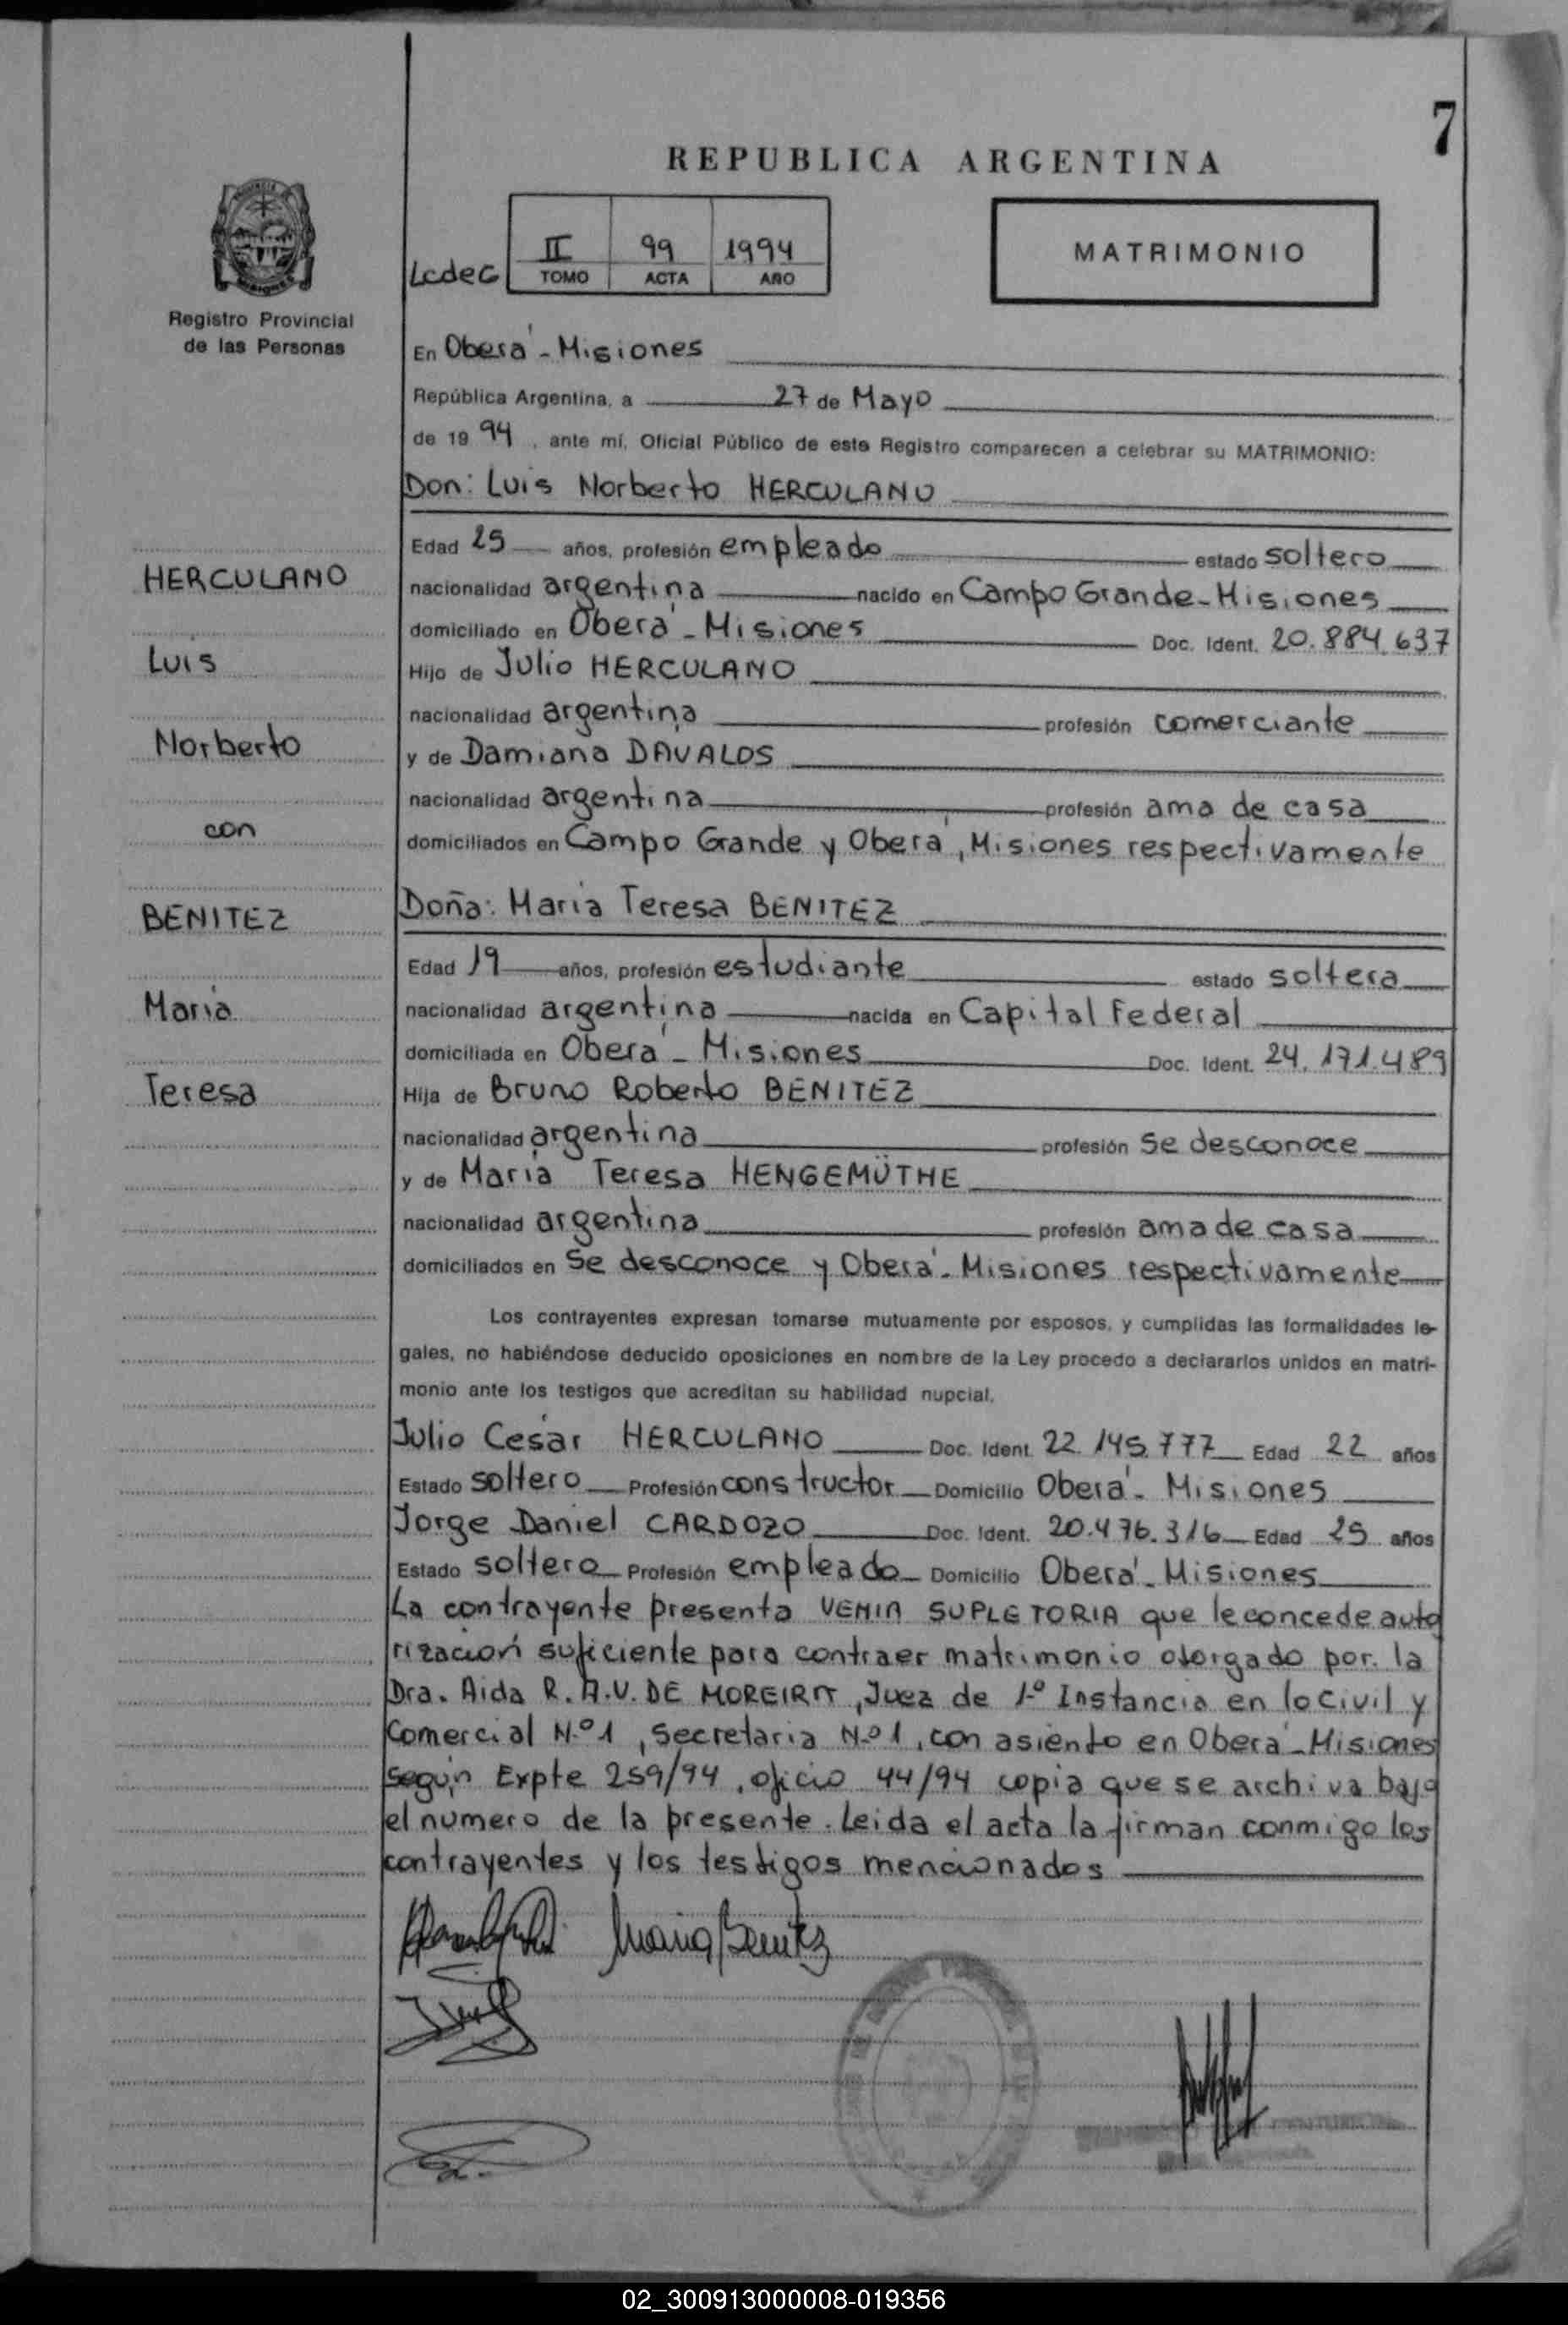 7
REPUBLICA ARGENTINA
II 99 1994
LcdeG TOMO ACTA AÑO
MATRIMONIO
Registro Provincial
de las Personas
En Oberá - Misiones
República Argentina, a 27 de Mayo
de 19 94, ante mí, Oficial Público de este Registro comparecen a celebrar su MATRIMONIO:
Don: Luis Norberto HERCULANO
Edad 25 años, profesión empleado estado soltero
HERCULANO
nacionalidad argentina nacido en Campo Grande - Misiones
domiciliado en Oberá - Misiones Doc. Ident. 20.884.637
Luis
Hijo de Julio HERCULANO
nacionalidad argentina profesión comerciante
Norberto
y de Damiana DAVALOS
nacionalidad argentina profesión ama de casa
con
domiciliados en Campo Grande y Oberá, Misiones respectivamente
BENITEZ
Doña: María Teresa BENITEZ
Edad 19 años, profesión estudiante estado soltera
María
nacionalidad argentina nacida en Capital Federal
domiciliada en Oberá - Misiones Doc. Ident. 24.171.489
Teresa
Hija de Bruno Roberto BENITEZ
nacionalidad argentina profesión se desconoce
y de María Teresa HENGEMÜTHE
nacionalidad argentina profesión ama de casa
domiciliados en Se desconoce y Oberá - Misiones respectivamente
Los contrayentes expresan tomarse mutuamente por esposos, y cumplidas las formalidades le-
gales, no habiéndose deducido oposiciones en nombre de la Ley procedo a declararlos unidos en matri-
monio ante los testigos que acreditan su habilidad nupcial.
Julio Cesár HERCULANO Doc. Ident. 22.145.777 Edad 22 años
Estado soltero Profesión constructor Domicilio Oberá - Misiones
Jorge Daniel CARDOZO Doc. Ident. 20.476.316 Edad 25 años
Estado soltero Profesión empleado Domicilio Oberá - Misiones
La contrayente presenta VENIA SUPLETORIA que le concede auto
rización suficiente para contraer matrimonio otorgado por la
Dra. Aida R. A. V. DE MOREIRA, Juez de 1º Instancia en lo Civil y
Comercial N.º 1, Secretaria N.º 1, con asiento en Oberá - Misiones
según Expte 259/94, oficio 44/94 copia que se archiva bajo
el numero de la presente. Leida el acta la firman conmigo los
contrayentes y los testigos mencionados
María Benitez
02_300913000008-019356